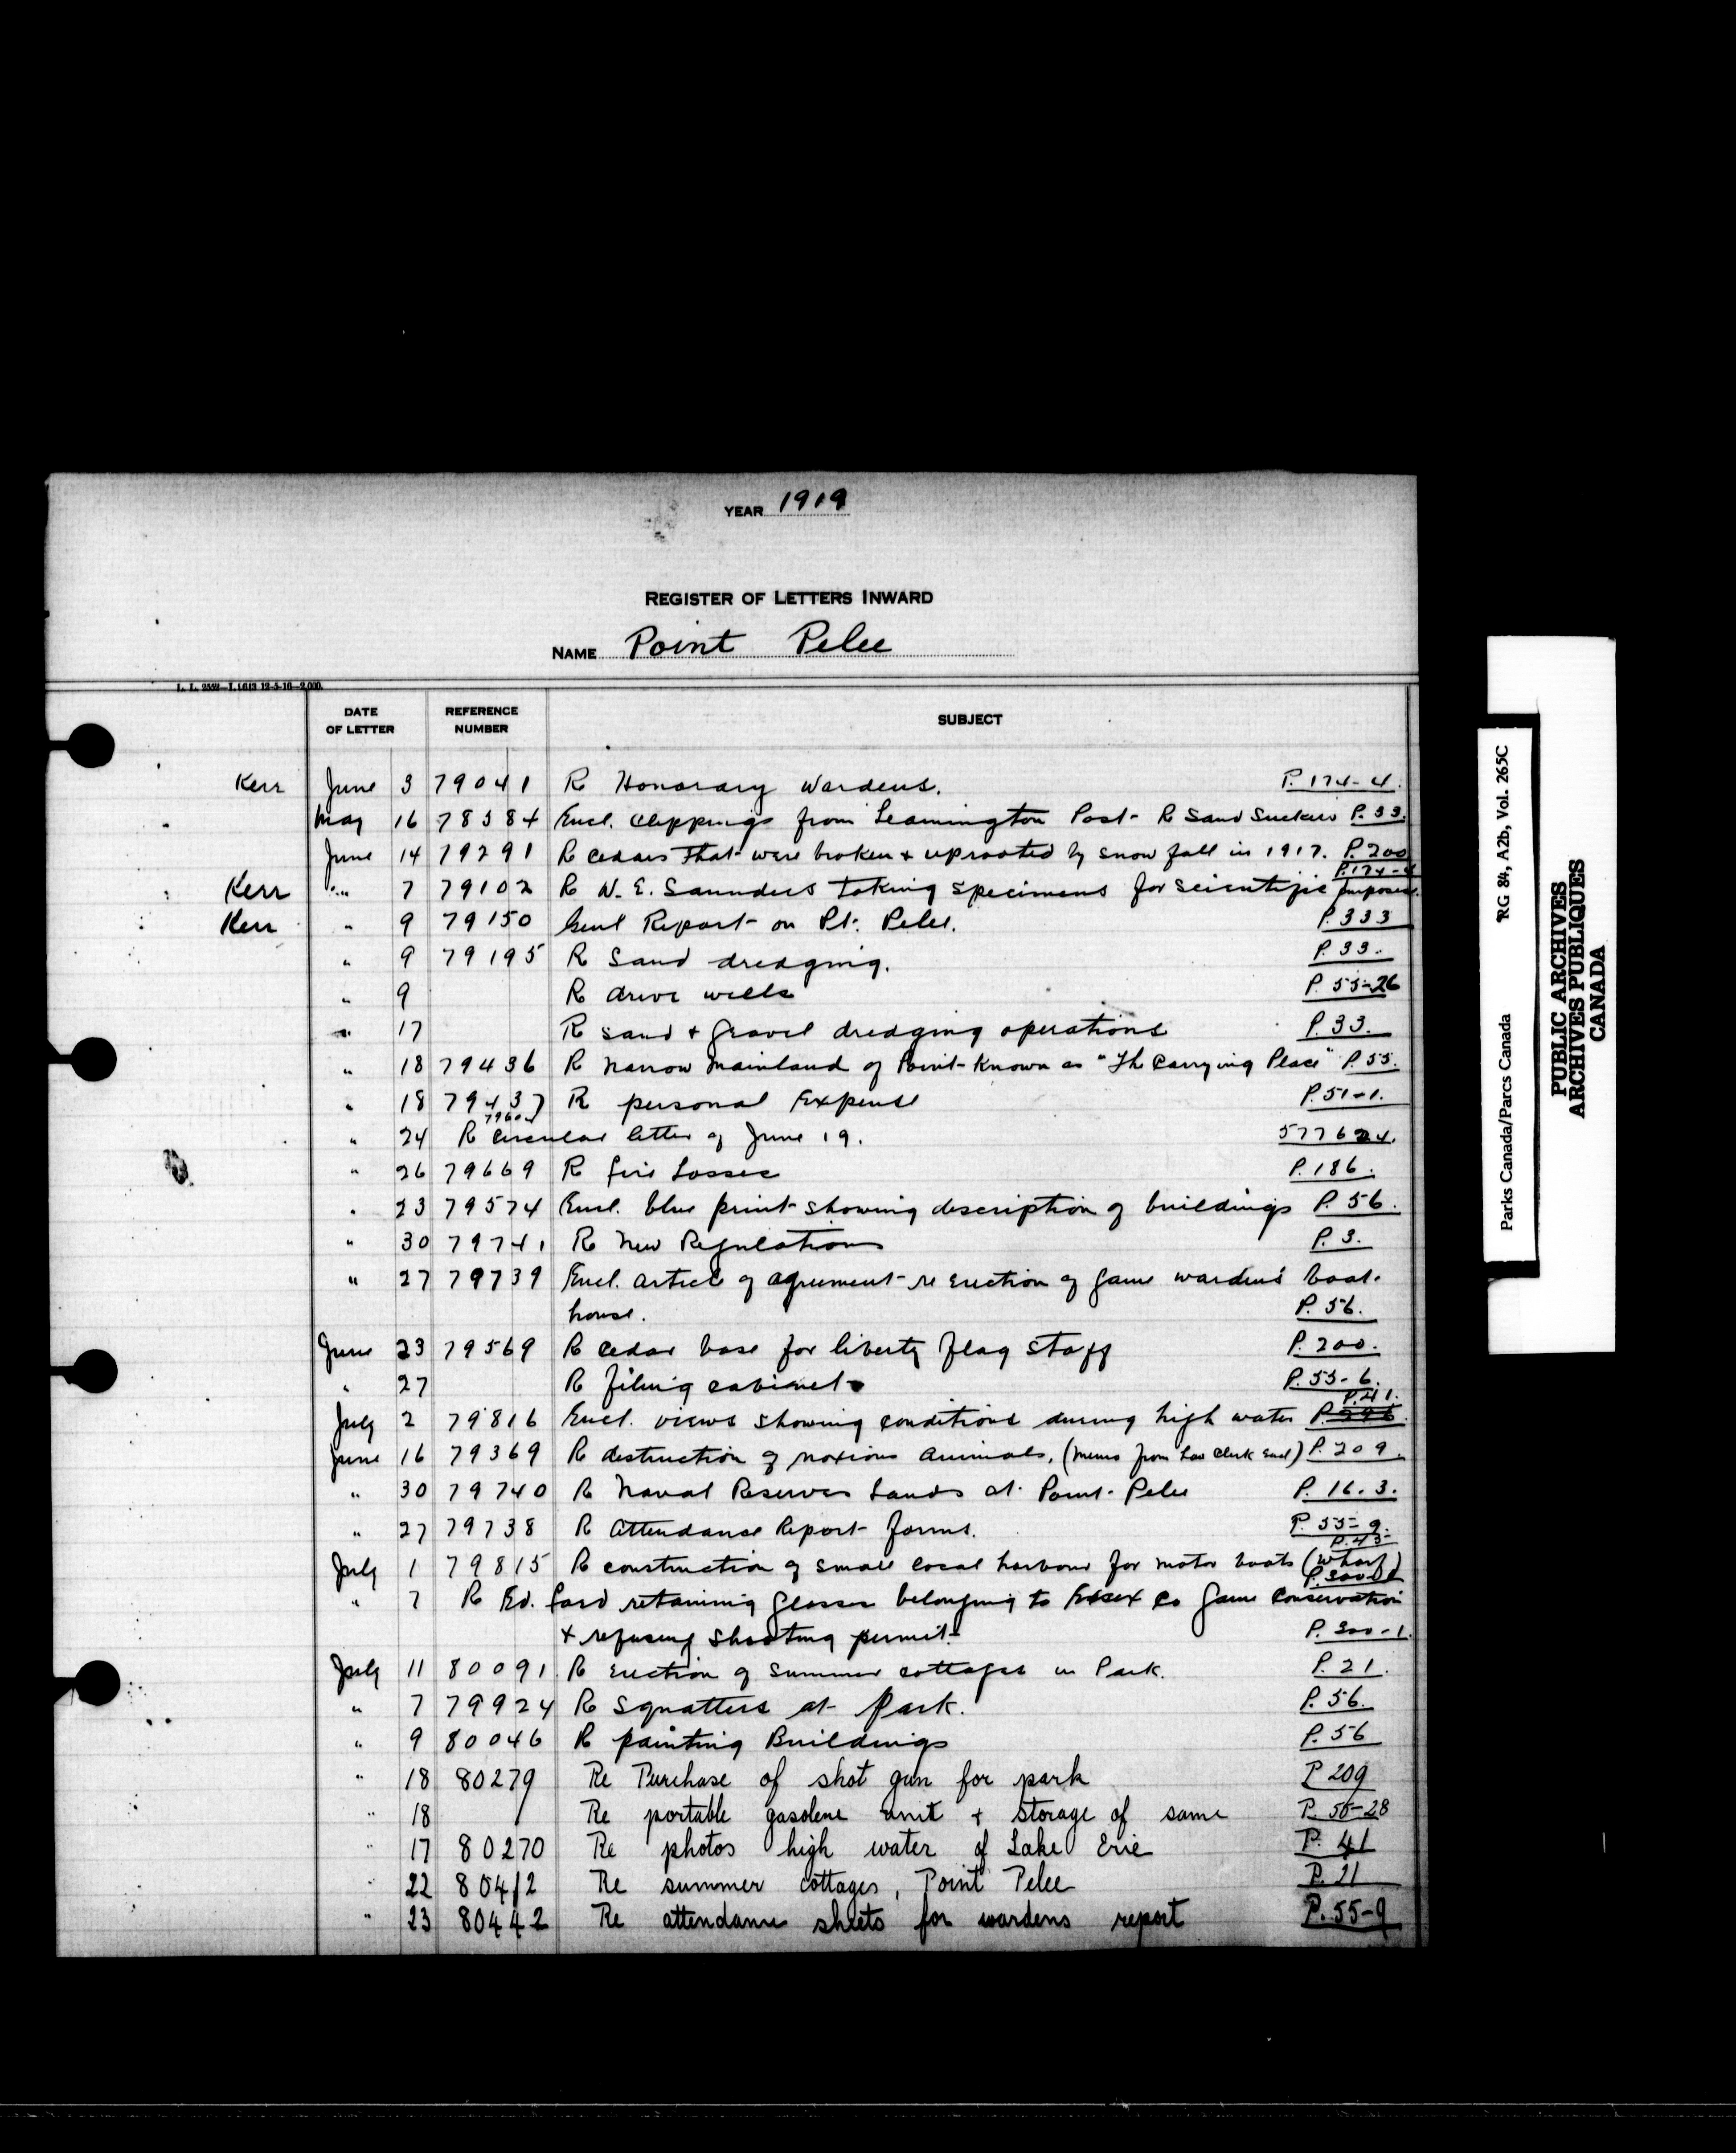 YEAR 1919
REGISTER OF LETTERS INWARD
NAME Point Pelee
L. L. 2552—L 1613 12-5-16—2,000.
DATE OF LETTER REFERENCE NUMBER SUBJECT
Kerr June 3 79041 R Honorary Wardens. P. 174-4.
May 16 78584 Encl. Clippings from Leamington Post - R Sand Suckers P. 33.
June 14 79291 R Cedars that were broken + uprooted by snow fall in 1917. P. 200
P. 174-4
Kerr " 7 79102 R W. E. Saunders taking specimens for scientific purposes.
Kerr " 9 79150 Genl Report on Pt. Pelee. P. 333
" 9 79195 R Sand dredging. P. 33.
" 9 R drive wells P. 55-26
" 17 R sand + gravel dredging operations P. 33.
" 18 79436 R Narrow Mainland of Point Known as "Th Carrying Place" P. 55.
" 18 79437 R personal Expense P. 51-1.
" 24 R Circular letter of June 19. 577624.
" 26 79669 R fire Losses P. 186.
" 23 79574 Encl. blue print showing description of buildings P. 56.
" 30 79741 R New Regulations P. 3.
" 27 79739 Encl. article of agreement re erection of Game warden's boat-
house. P. 56.
June 23 79569 R cedar base for liberty flag staff P. 200.
" 27 R filing cabinet P. 55-6.
P. 41.
July 2 79816 Encl. views showing conditions during high water P.
June 16 79369 R destruction of noxious animals. (Memo from Law Clerk Encl) P. 209.
" 30 79740 R Naval Reserves Lands at Point Pelee P. 16.3.
" 27 79738 R Attendance Report forms. P. 55-9.
P. 43-
July 1 79815 R construction of small local harbour for motor boats (wharf)
" 7 R Ed. Ford retaining glasses belonging to Essex Co Game Conservation
+ refusing shooting permit P. 300-1.
July 11 80091 R Erection of summer cottages in Park. P. 21.
" 7 79924 R Squatters at Park. P. 56.
" 9 80046 R painting Buildings P. 56
" 18 80279 Re Purchase of shot gun for park P 209
" 18 Re portable gasolene unit + storage of same P. 55-28
" 17 80270 Re photos high water of Lake Erie P. 41
" 22 80412 Re summer cottages, Point Pelee P. 21
" 23 80442 Re attendance sheets for wardens report P. 55-9
Parks Canada/Parcs Canada RG 84, A2b, Vol. 265C
PUBLIC ARCHIVES
ARCHIVES PUBLIQUES
CANADA